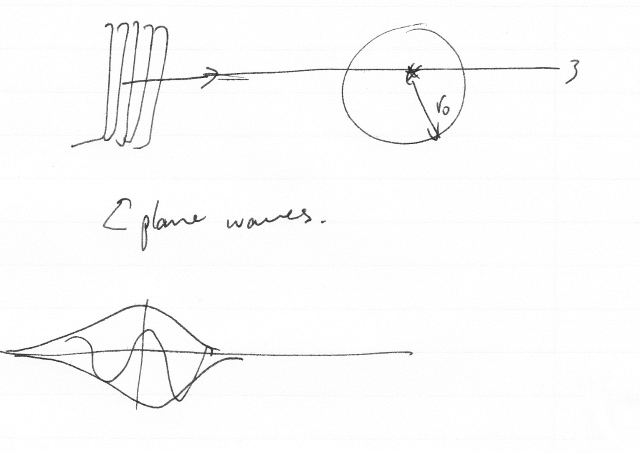 z
r₀
Σ plane waves.